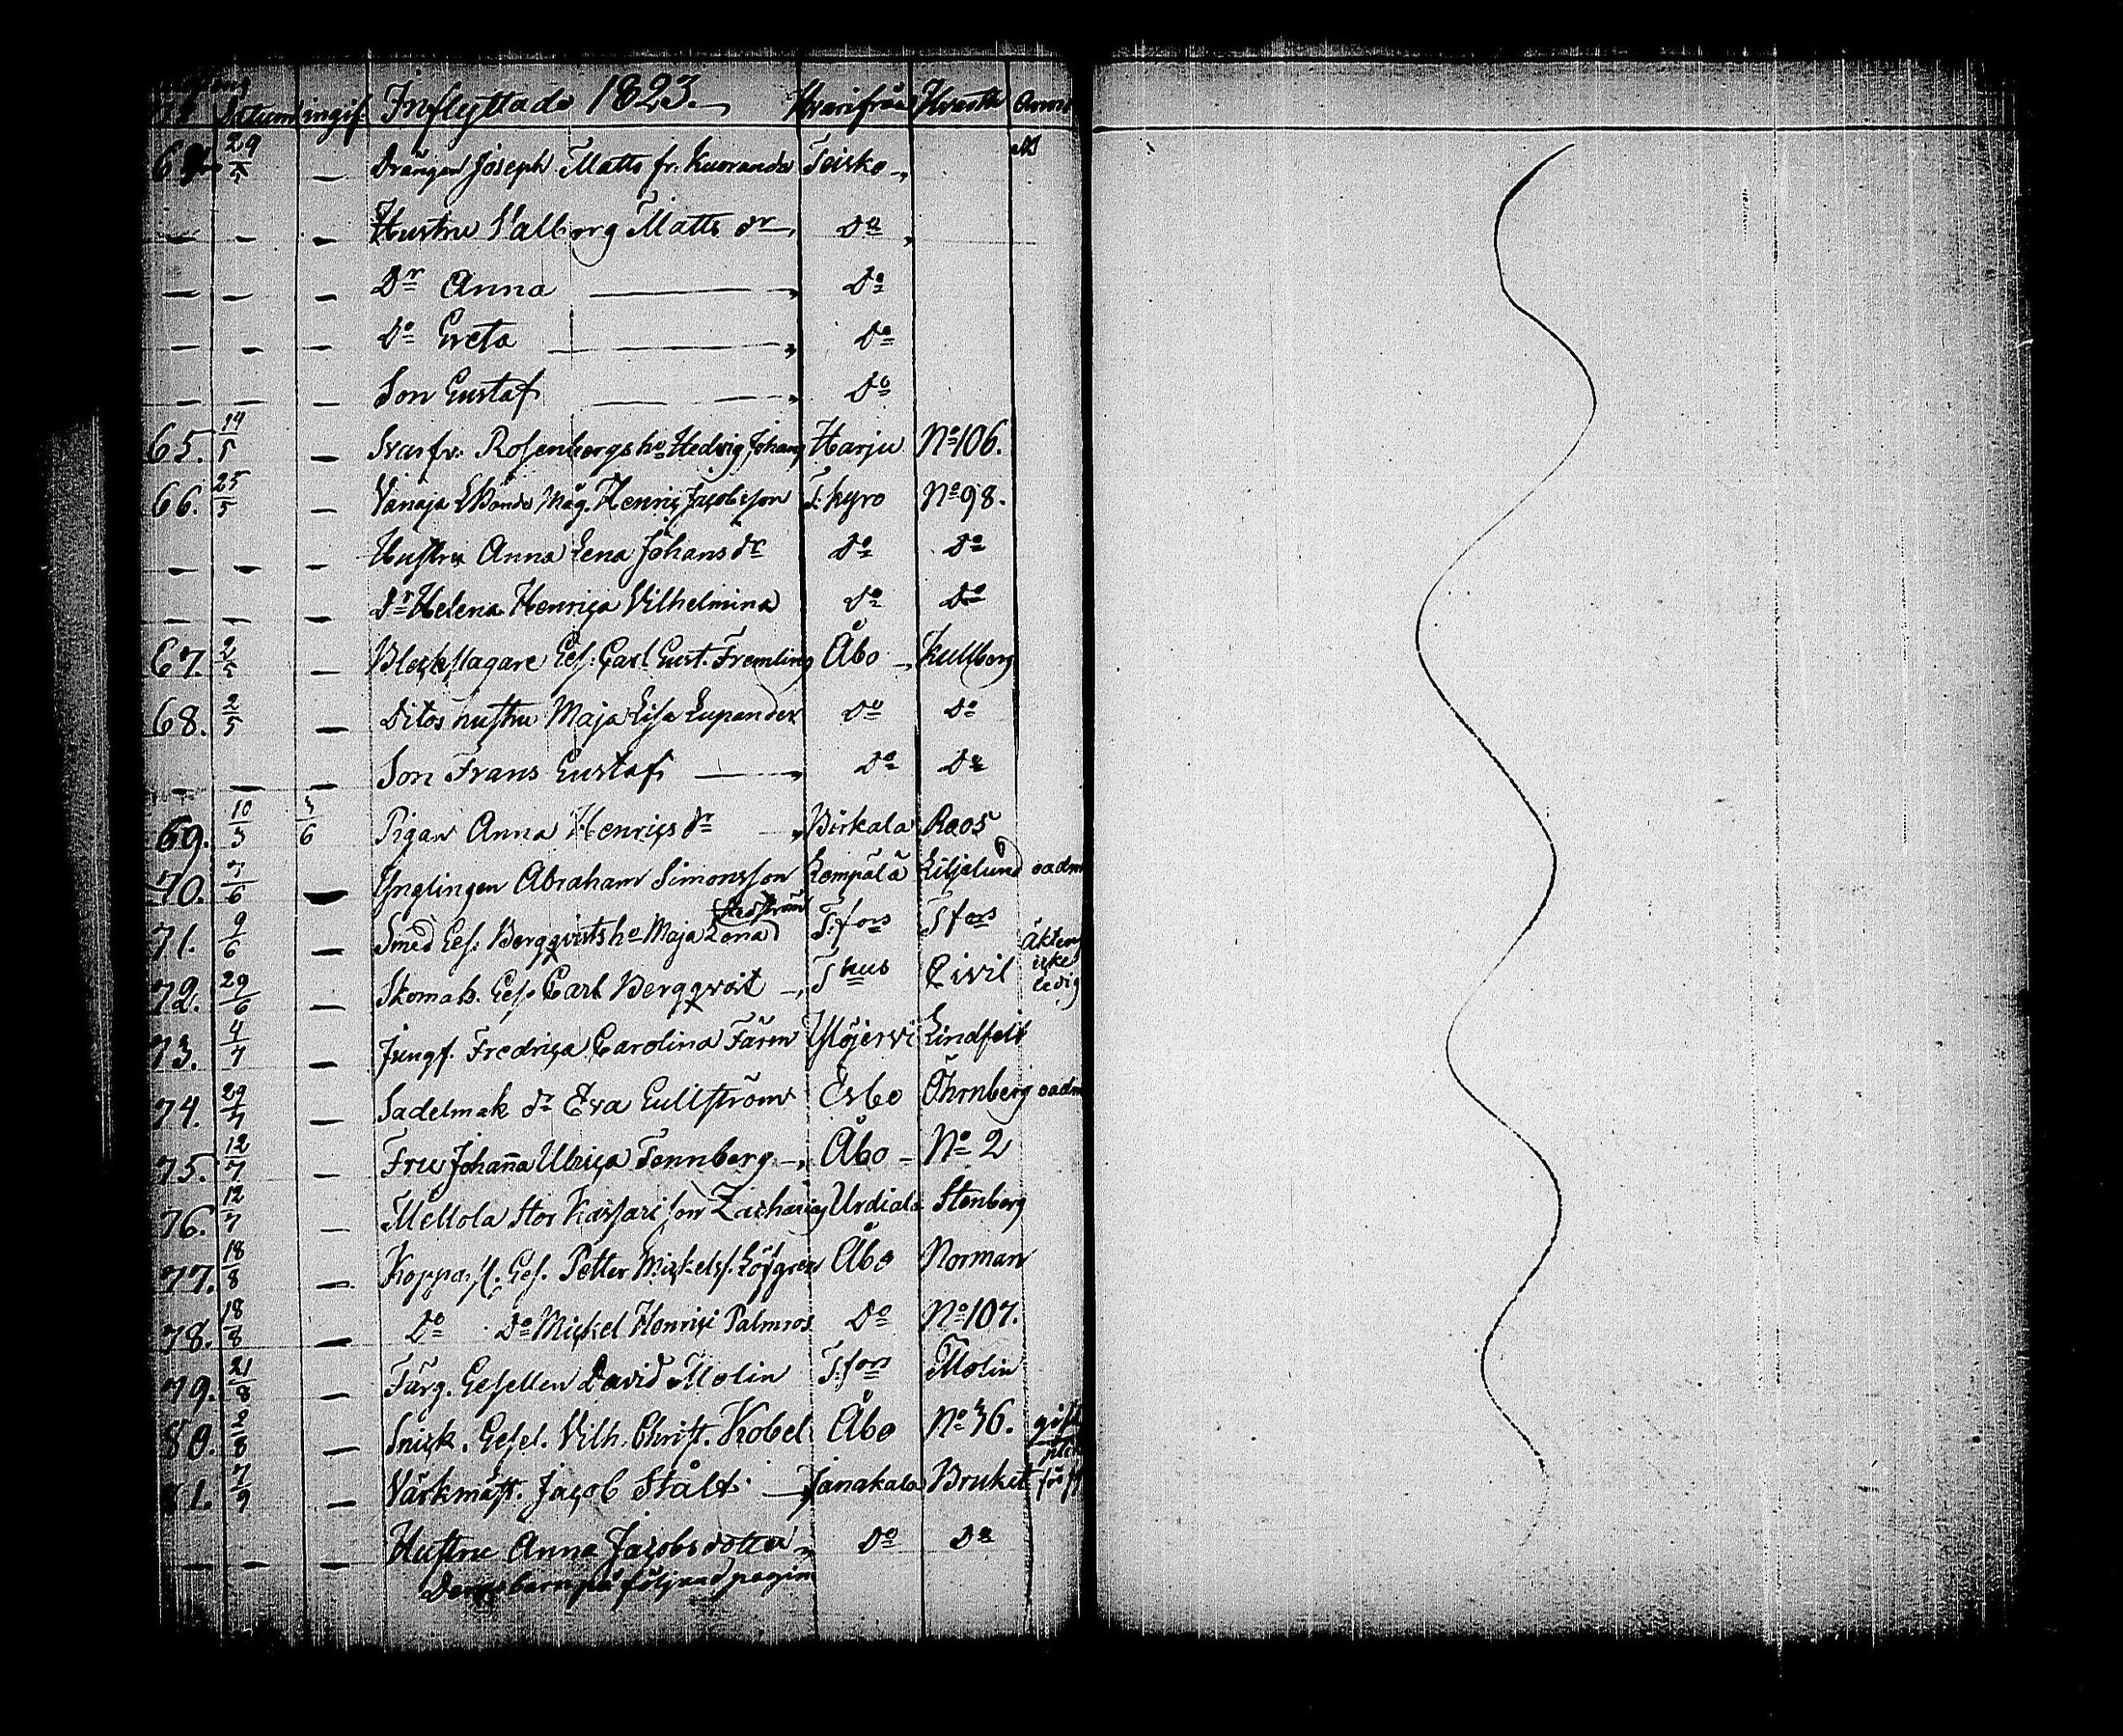 Datum ingif. Inflyttade 1823. Hvarifrån Hvarth Anm
64. 29/5 — Drängen Joseph Matts fr. Kuoranda Teisko
— — — Hustru Valborg Matts dr Do
— — — Dr Anna Do
— — — Do Greta Do
— — — Son Gustaf Do
65. 14/5 — Svarfv. Rosenbergs ho Hedvig Johans Harju No 106.
66. 25/5 — Vanaja Bonde Måg. Henric Jacobsson T. kyro No 98.
— — — Hustru Anna Lena Johans dr Do Do
— — — Dr Helena Henrica Vilhelmina Do Do
67. 2/5 — Bleckslagare Ges. Carl Gust. Fremling Åbo Kullberg
68. 2/5 — Ditos hustru Maja Lisa Lupander Do Do
— — — Son Frans Gustaf Do Do
69. 10/5 5/6 Pigan Anna Henrics dr Birkala Roos
70. 7/6 — Ynglingen Abraham Simonsson Lempälä Liljelund oadm
71. 9/6 — Smed Ges. Bergqvists ho Maja Lena T:fors T fors
72. 29/6 — Skomak. Ges. Carl Bergqvist T hus Civil Äkten icke ledig
73. 4/7 — Jungf. Fredrica Carolina Farm Ylöjervi Lindfelt
74. 29/7 — Sadelmak dr Eva Gullström Esbo Öhrnberg oadm
75. 12/7 — Fru Johanna Ulrica Tennberg Åbo No 2
76. 12/7 — Mellola Stor Kassari son Zacharias Urdiala Stenberg
77. 18/8 — Kopparsl. Ges. Petter Mickelss. Löfgren Åbo Norman
78. 18/8 — Do Do Mickel Henrici Palmros Do No 107.
79. 21/8 — Färg. Gesellen David Molin T:fors Molin
80. 2/8 — Snick. Gesel. Vilh. Christ. Kobel Åbo No 36. gift
81. 7/9 — Värkmäst. Jacob Stålt Janakala Bruket
— — — Hustru Anna Jacobsdotter Do Do
Deras barn på följand pagina